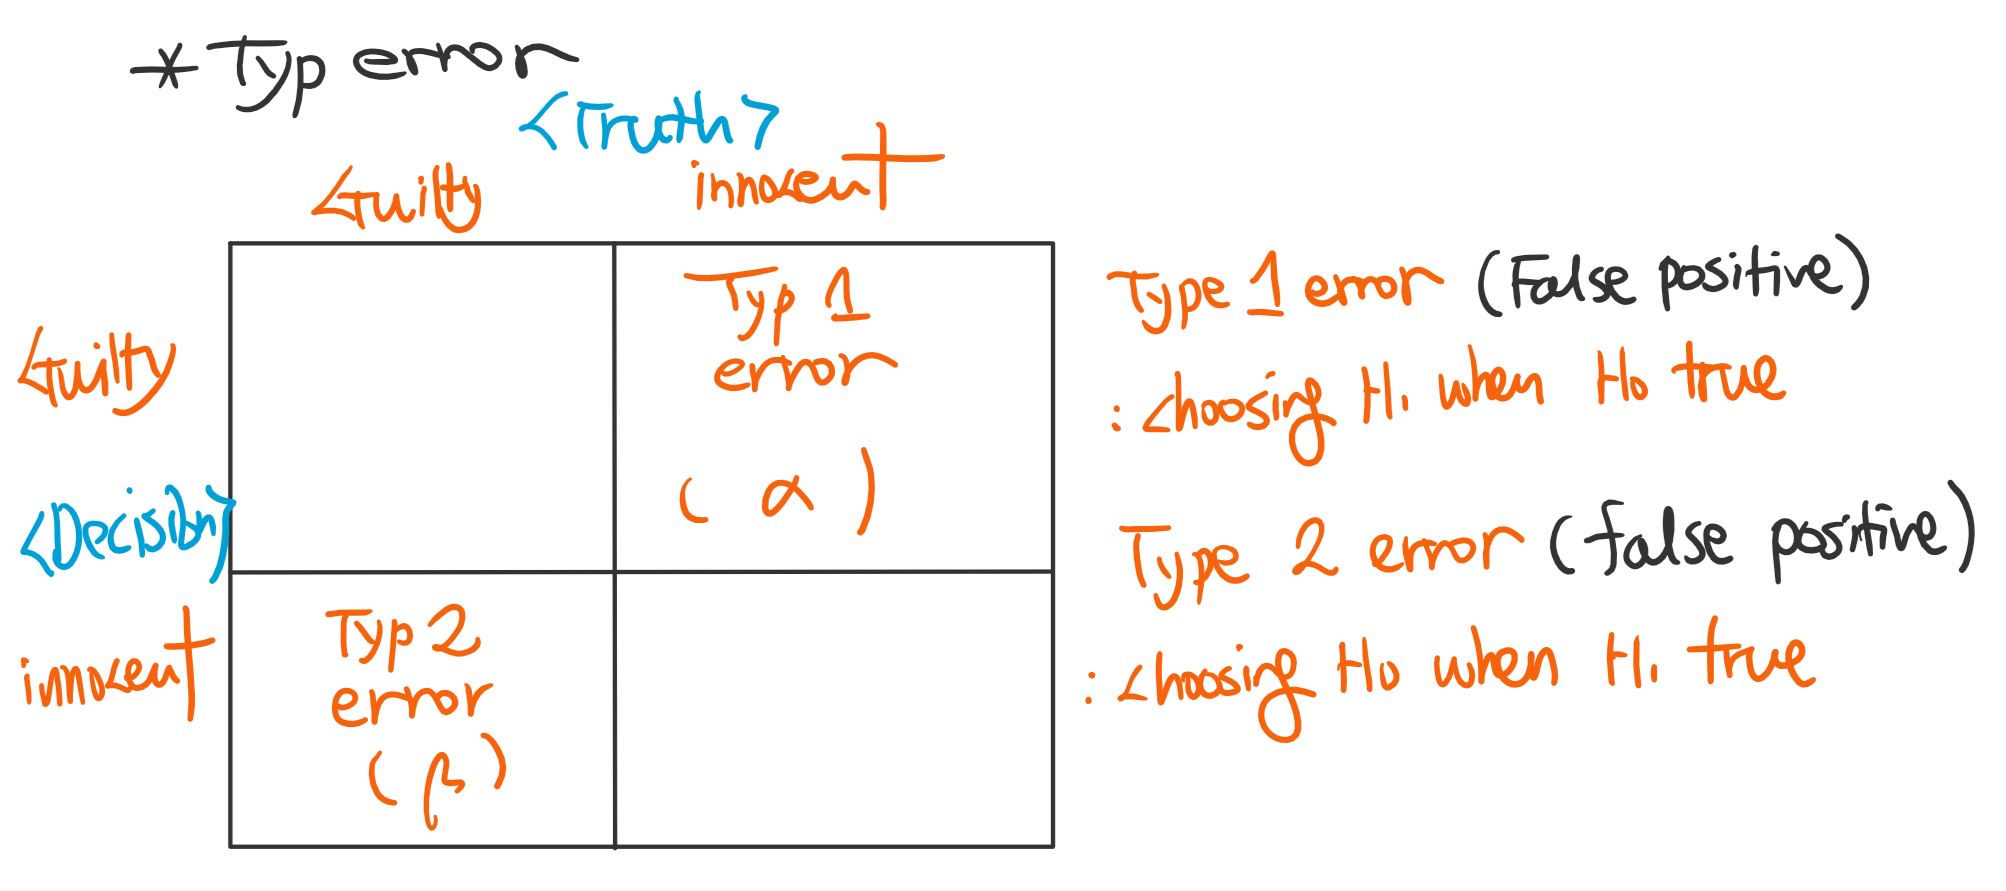 * Typ error
<Truth>
Guilty innocent
Guilty
Typ 1
error
(α)
<Decision>
innocent
Typ 2
error
(β)
Type 1 error (False positive)
: choosing H₁ when H₀ true
Type 2 error (false positive)
: choosing H₀ when H₁ true